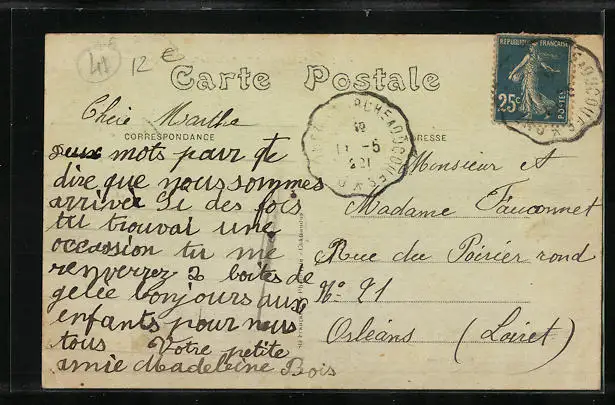 41
12 €
Carte Postale
REPUBLIQUE FRANÇAISE
25c
POSTES
Chère Marthe
CORRESPONDANCE
deux mots pour te
dire que nous sommes
arriver Si des fois
tu trouvai une
occassion tu me
renverrez 2 boites de
gelée bonjours aux
enfants pour nous
tous Votre petite
amie Madeleine Bois
11 -5
21
Monsieur et
Madame Fauconnet
Rue du Poirier rond
No 21
Orléans (Loiret)